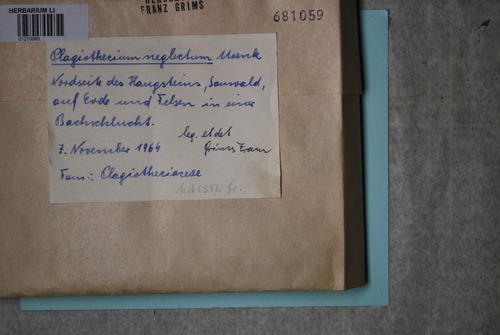 HERBARIUM LI
01210980
HERBARIUM
FRANZ GRIMS
681059
Plagiothecium neglectum Moenk
Nordseite des Haugsteins, Sauwald,
auf Erde und Felsen in einer
Bachschlucht.
leg. et det
7. November 1964 Grims Franz
Fam.: Plagiotheciaceae